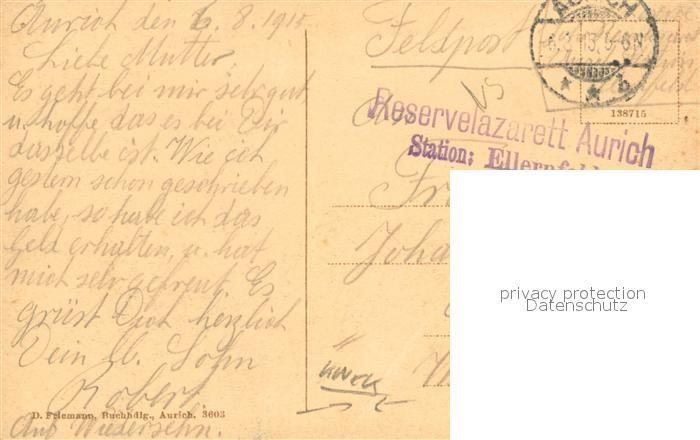 Aurich den 6. 8. 1915
Liebe Mutter,
Es geht bei mir sehr gut
u. hoffe, das es bei Dir
dasselbe ist. Wie ich
gestern schon geschrieben
habe, so habe ich das
Geld erhalten, u. hat
mich sehr gefreut. Es
grüst Dich herzlich
Dein lb. Sohn
Robert
Auf Wiedersehn.
D. Friemann, Buchhdlg., Aurich. 3603
Feldpost
AURICH
5-6N
138715
Reservelazarett Aurich
Station:
Joha
privacy protection
Datenschutz